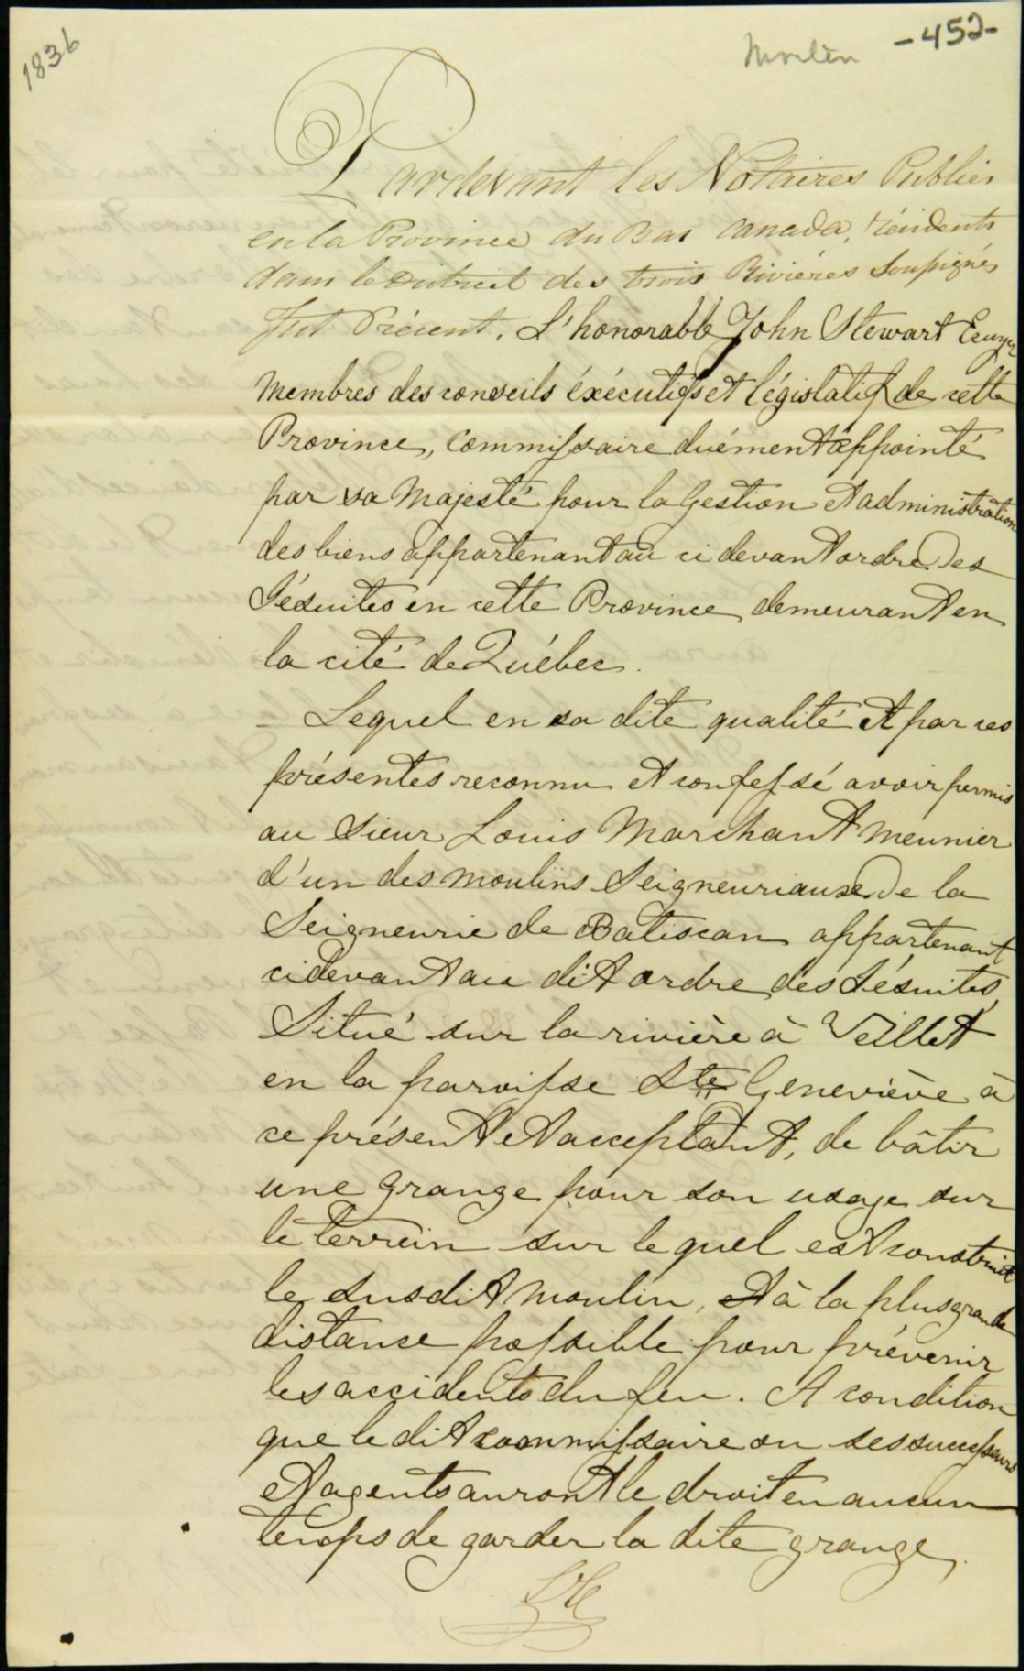 1836
Moulin
-452-
Pardevant les Notaires Publics
en la Province du Bas Canada, résidents
dans le District des trois Rivières Soussignés
Fut Présent, L'honorable John Stewart Ecuyer
Membres des conseils éxécutifs et législatif de cette
Province, Commissaire duément appointé
par sa Majesté pour la Gestion et administration
des biens appartenant au ci devant ordre des
Jésuites en cette Province, demeurant en
la cité de Québec.
- Lequel en sa dite qualité et par ces
présentes reconnu et confessé avoir permis
au Sieur Louis Marchant meunier
d'un des moulins Seigneuriaux de la
Seigneurie de Batiscan appartenant
cidevant au dit ordre des Jésuites,
Situé sur la rivière à Veillet
en la paroisse Ste Geneviève à
ce présent et acceptant, de bâtir
une grange pour son usage sur
le terrein sur lequel est construit
le susdit moulin, et à la plus grande
distance possible pour prévenir
les accidents du feu. A condition
que le dit commissaire ou ses successeurs
et agents auront le droit en aucun
temps de garder la dite grange,